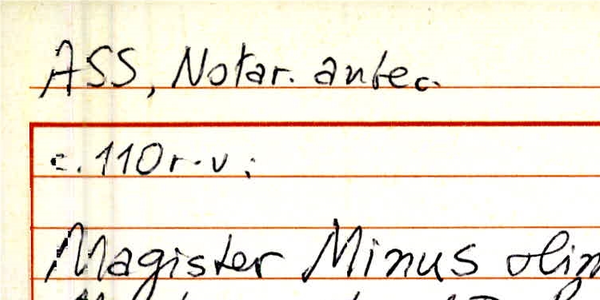 ASS, Notar. antec.
c. 110r-v;
Magister Minus olim